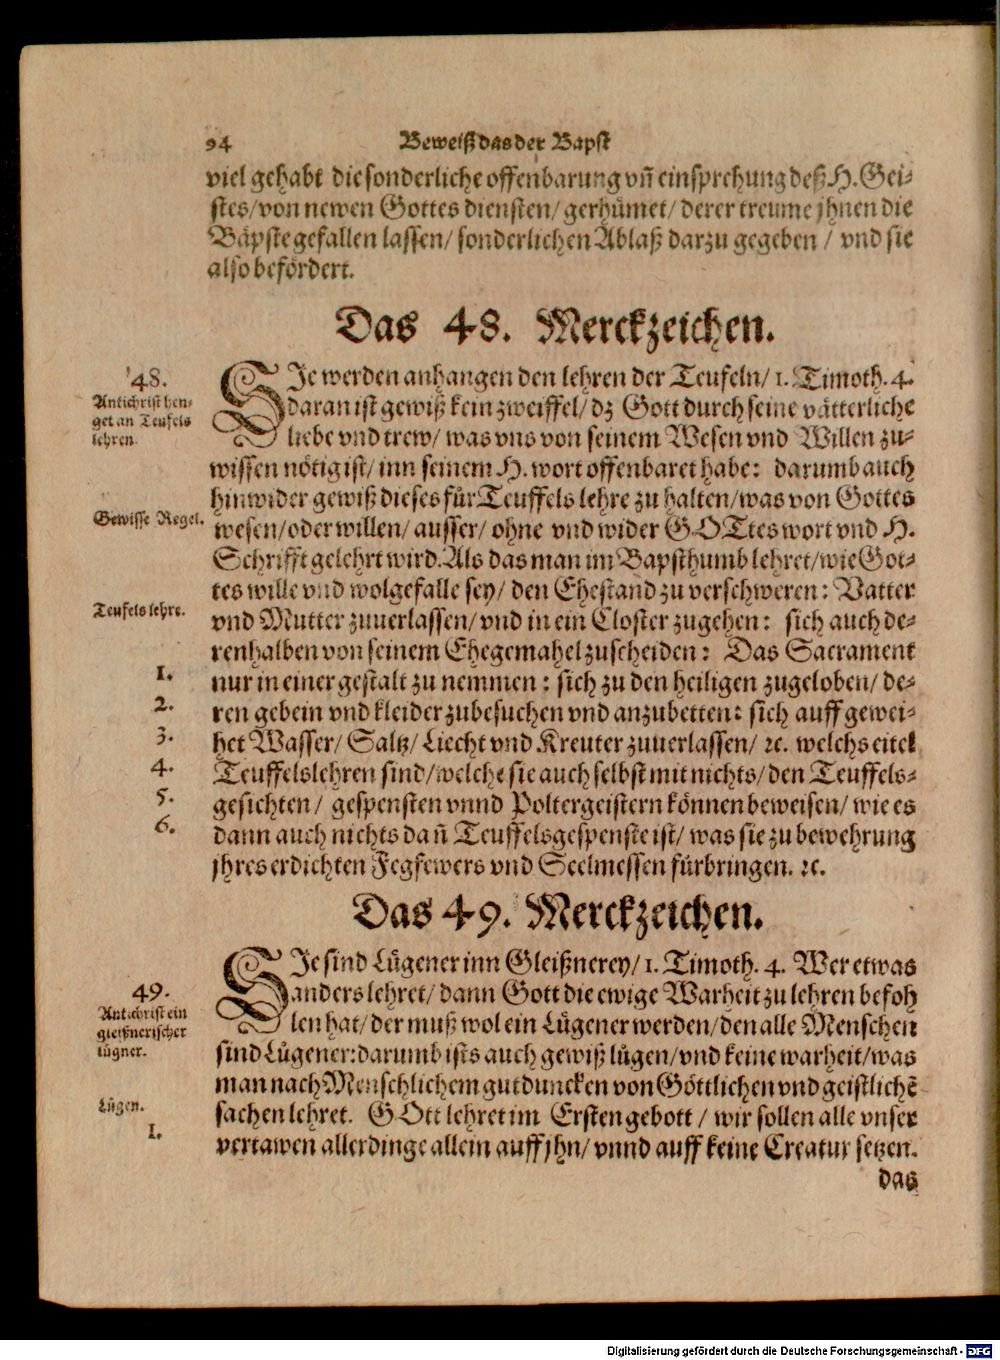 94 Beweiß das der Bapst
viel gehabt die sonderliche offenbarung vñ einsprechung deß H. Gei-
stes/ von newen Gottes diensten/ gerhümet/ derer treume jhnen die
Bäpste gefallen lassen/ sonderlichen Ablaß darzu gegeben / vnd sie
also befördert.
Das 48. Merckzeichen.
48.
Antichrist hen-
get an Teufels
lehren.
SIe werden anhangen den lehren der Teufeln/ 1. Timoth. 4.
daran ist gewiß kein zweiffel/ dz Gott durch seine vätterliche
liebe vnd trew/ was vns von seinem Wesen vnd Willen zu-
wissen nötig ist/ inn seinem H. wort offenbaret habe: darumb auch
hinwider gewiß dieses für Teuffels lehre zu halten/ was von Gottes
Gewisse Regel.
wesen/ oder willen/ ausser/ ohne vnd wider GOTtes wort vnd H.
Schrifft gelehrt wird. Als das man im Bapsthumb lehret/ wie Got-
tes wille vnd wolgefalle sey/ den Ehestand zu verschweren: Vatter
Teufels lehre.
vnd Mutter zuuerlassen/ vnd in ein Closter zugehen: sich auch de-
renhalben von seinem Ehegemahel zuscheiden: Das Sacrament
1.
nur in einer gestalt zu nemmen: sich zu den heiligen zugeloben/ de-
2.
ren gebein vnd kleider zubesuchen vnd anzubetten: sich auff gewei-
3.
het Wasser/ Saltz/ Liecht vnd Kreuter zuuerlassen/ ꝛc. welchs eitel
4.
Teuffelslehren sind/ welche sie auch selbst mit nichts/ den Teuffels-
5.
gesichten/ gespensten vnnd Poltergeistern können beweisen/ wie es
6.
dann auch nichts dañ Teuffelsgespenste ist/ was sie zu bewehrung
jhres erdichten Fegfewers vnd Seelmessen fürbringen. ꝛc.
Das 49. Merckzeichen.
49.
Antichrist ein
gleißnerischer
lügner.
SIe sind Lügener inn Gleißnerey/ 1. Timoth. 4. Wer etwas
anders lehret/ dann Gott die ewige Warheit zu lehren befoh
len hat/ der muß wol ein Lügener werden/ den alle Menschen
sind Lügener: darumb ists auch gewiß lügen/ vnd keine warheit/ was
man nach Menschlichem gutduncken von Göttlichen vnd geistlichẽ
Lügen.
sachen lehret. GOtt lehret im Ersten gebott / wir sollen alle vnser
1.
vertawen allerdinge allein auff jhn/ vnnd auff keine Creatur setzen.
das
Digitalisierung gefördert durch die Deutsche Forschungsgemeinschaft - DFG